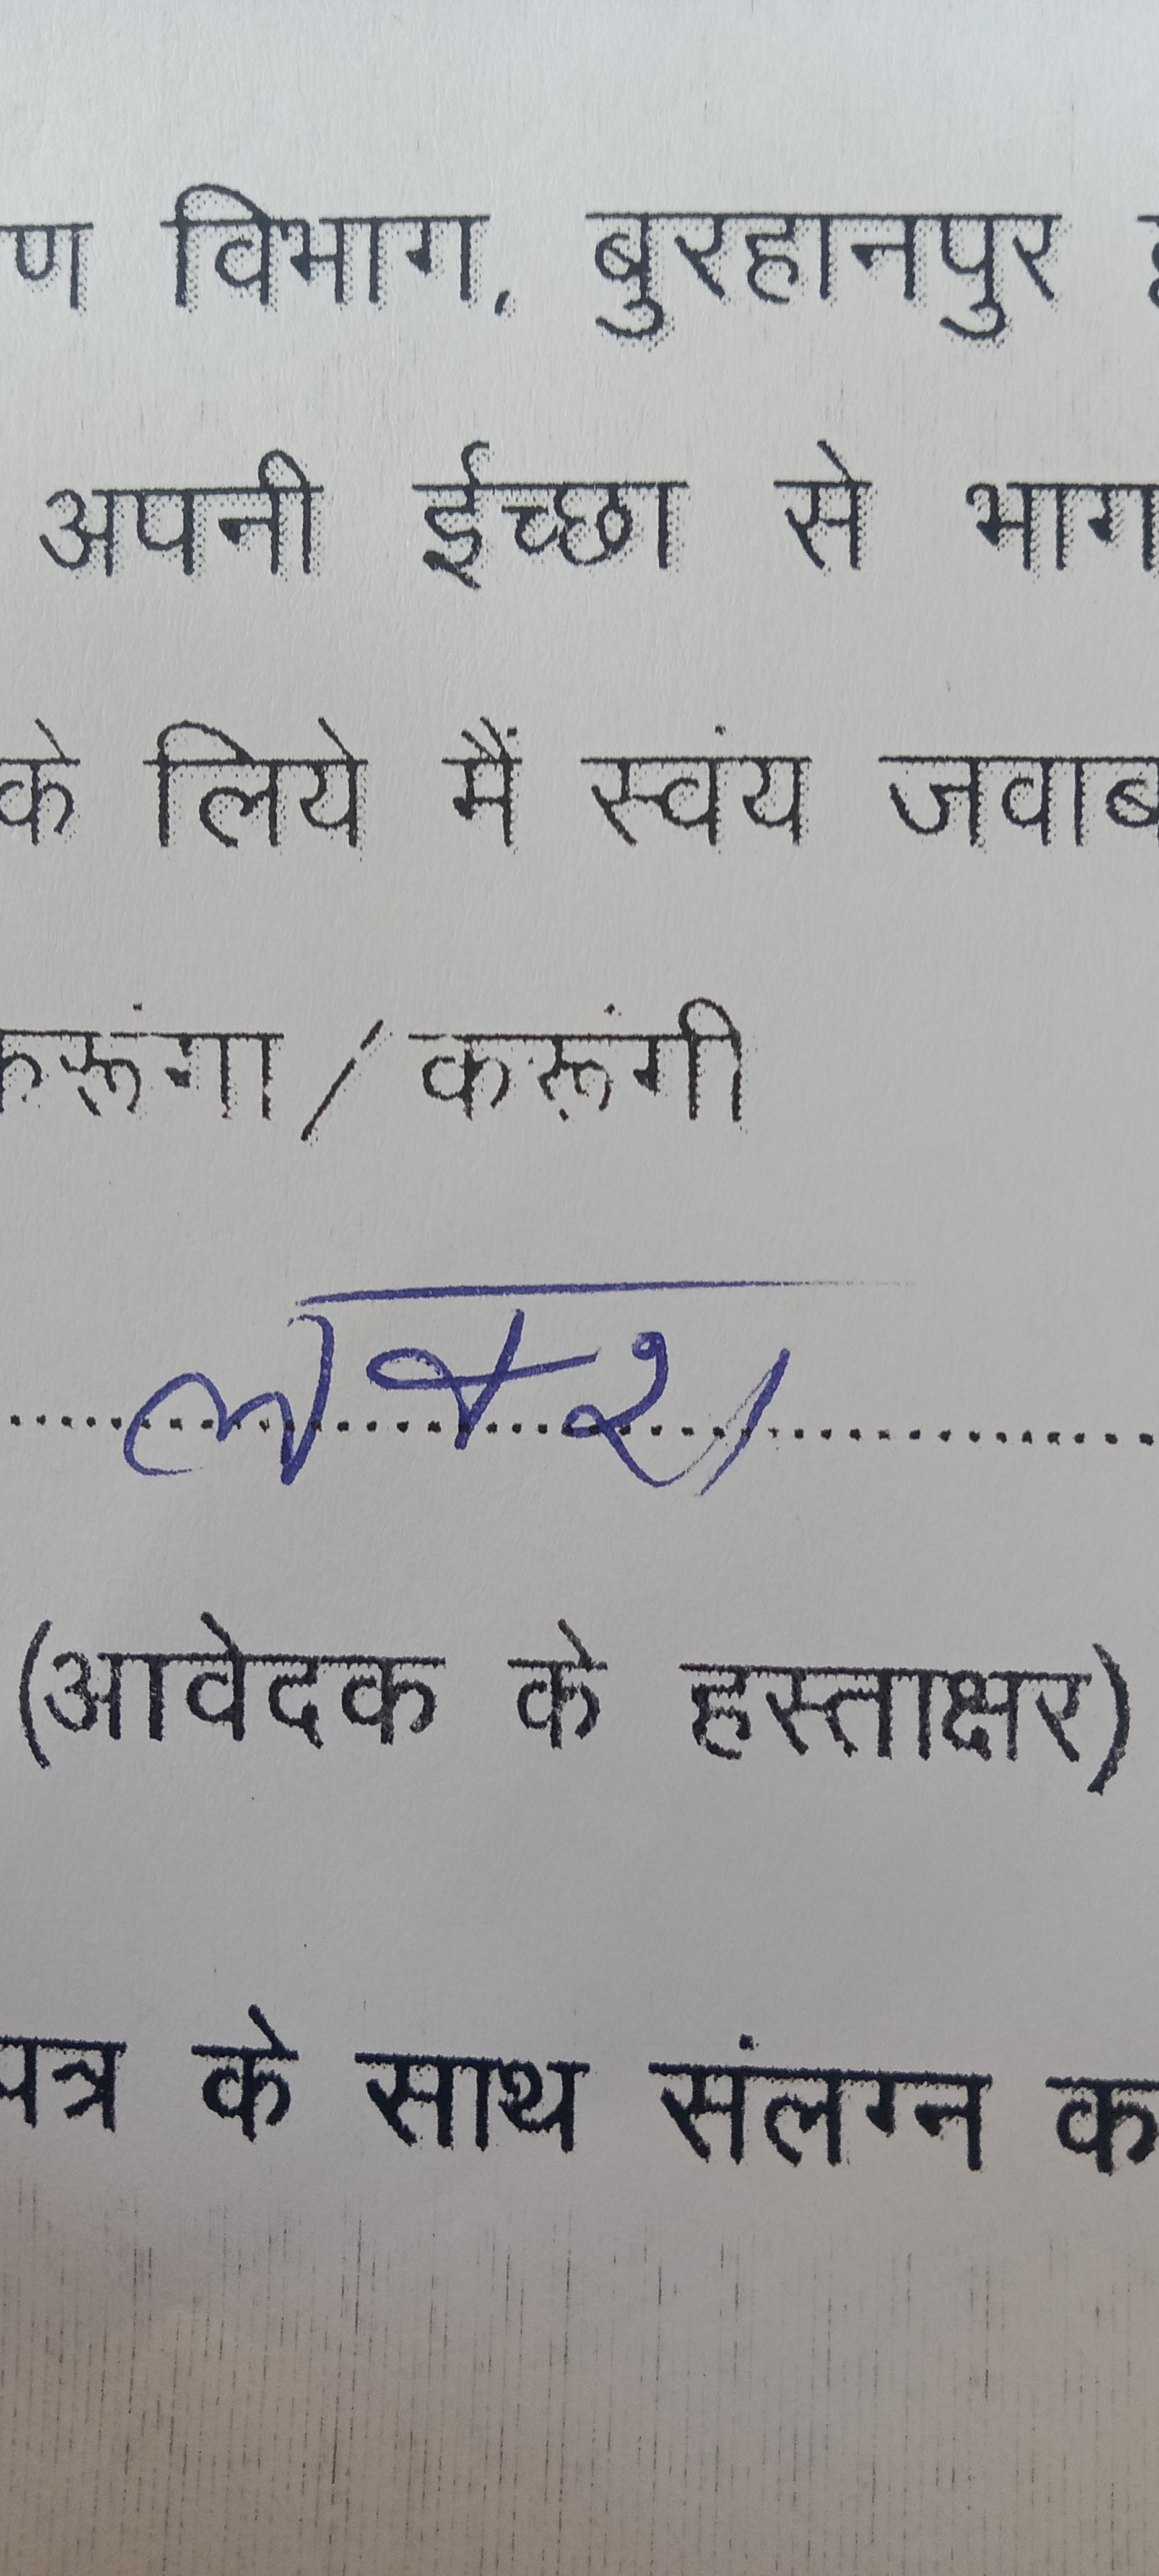 ण विभाग, बुरहानपुर
अपनी ईच्छा से भाग
के लिये मैं स्वंय जवाब
करूंगा / करूंगी
(आवेदक के हस्ताक्षर)
पत्र के साथ संलग्न क